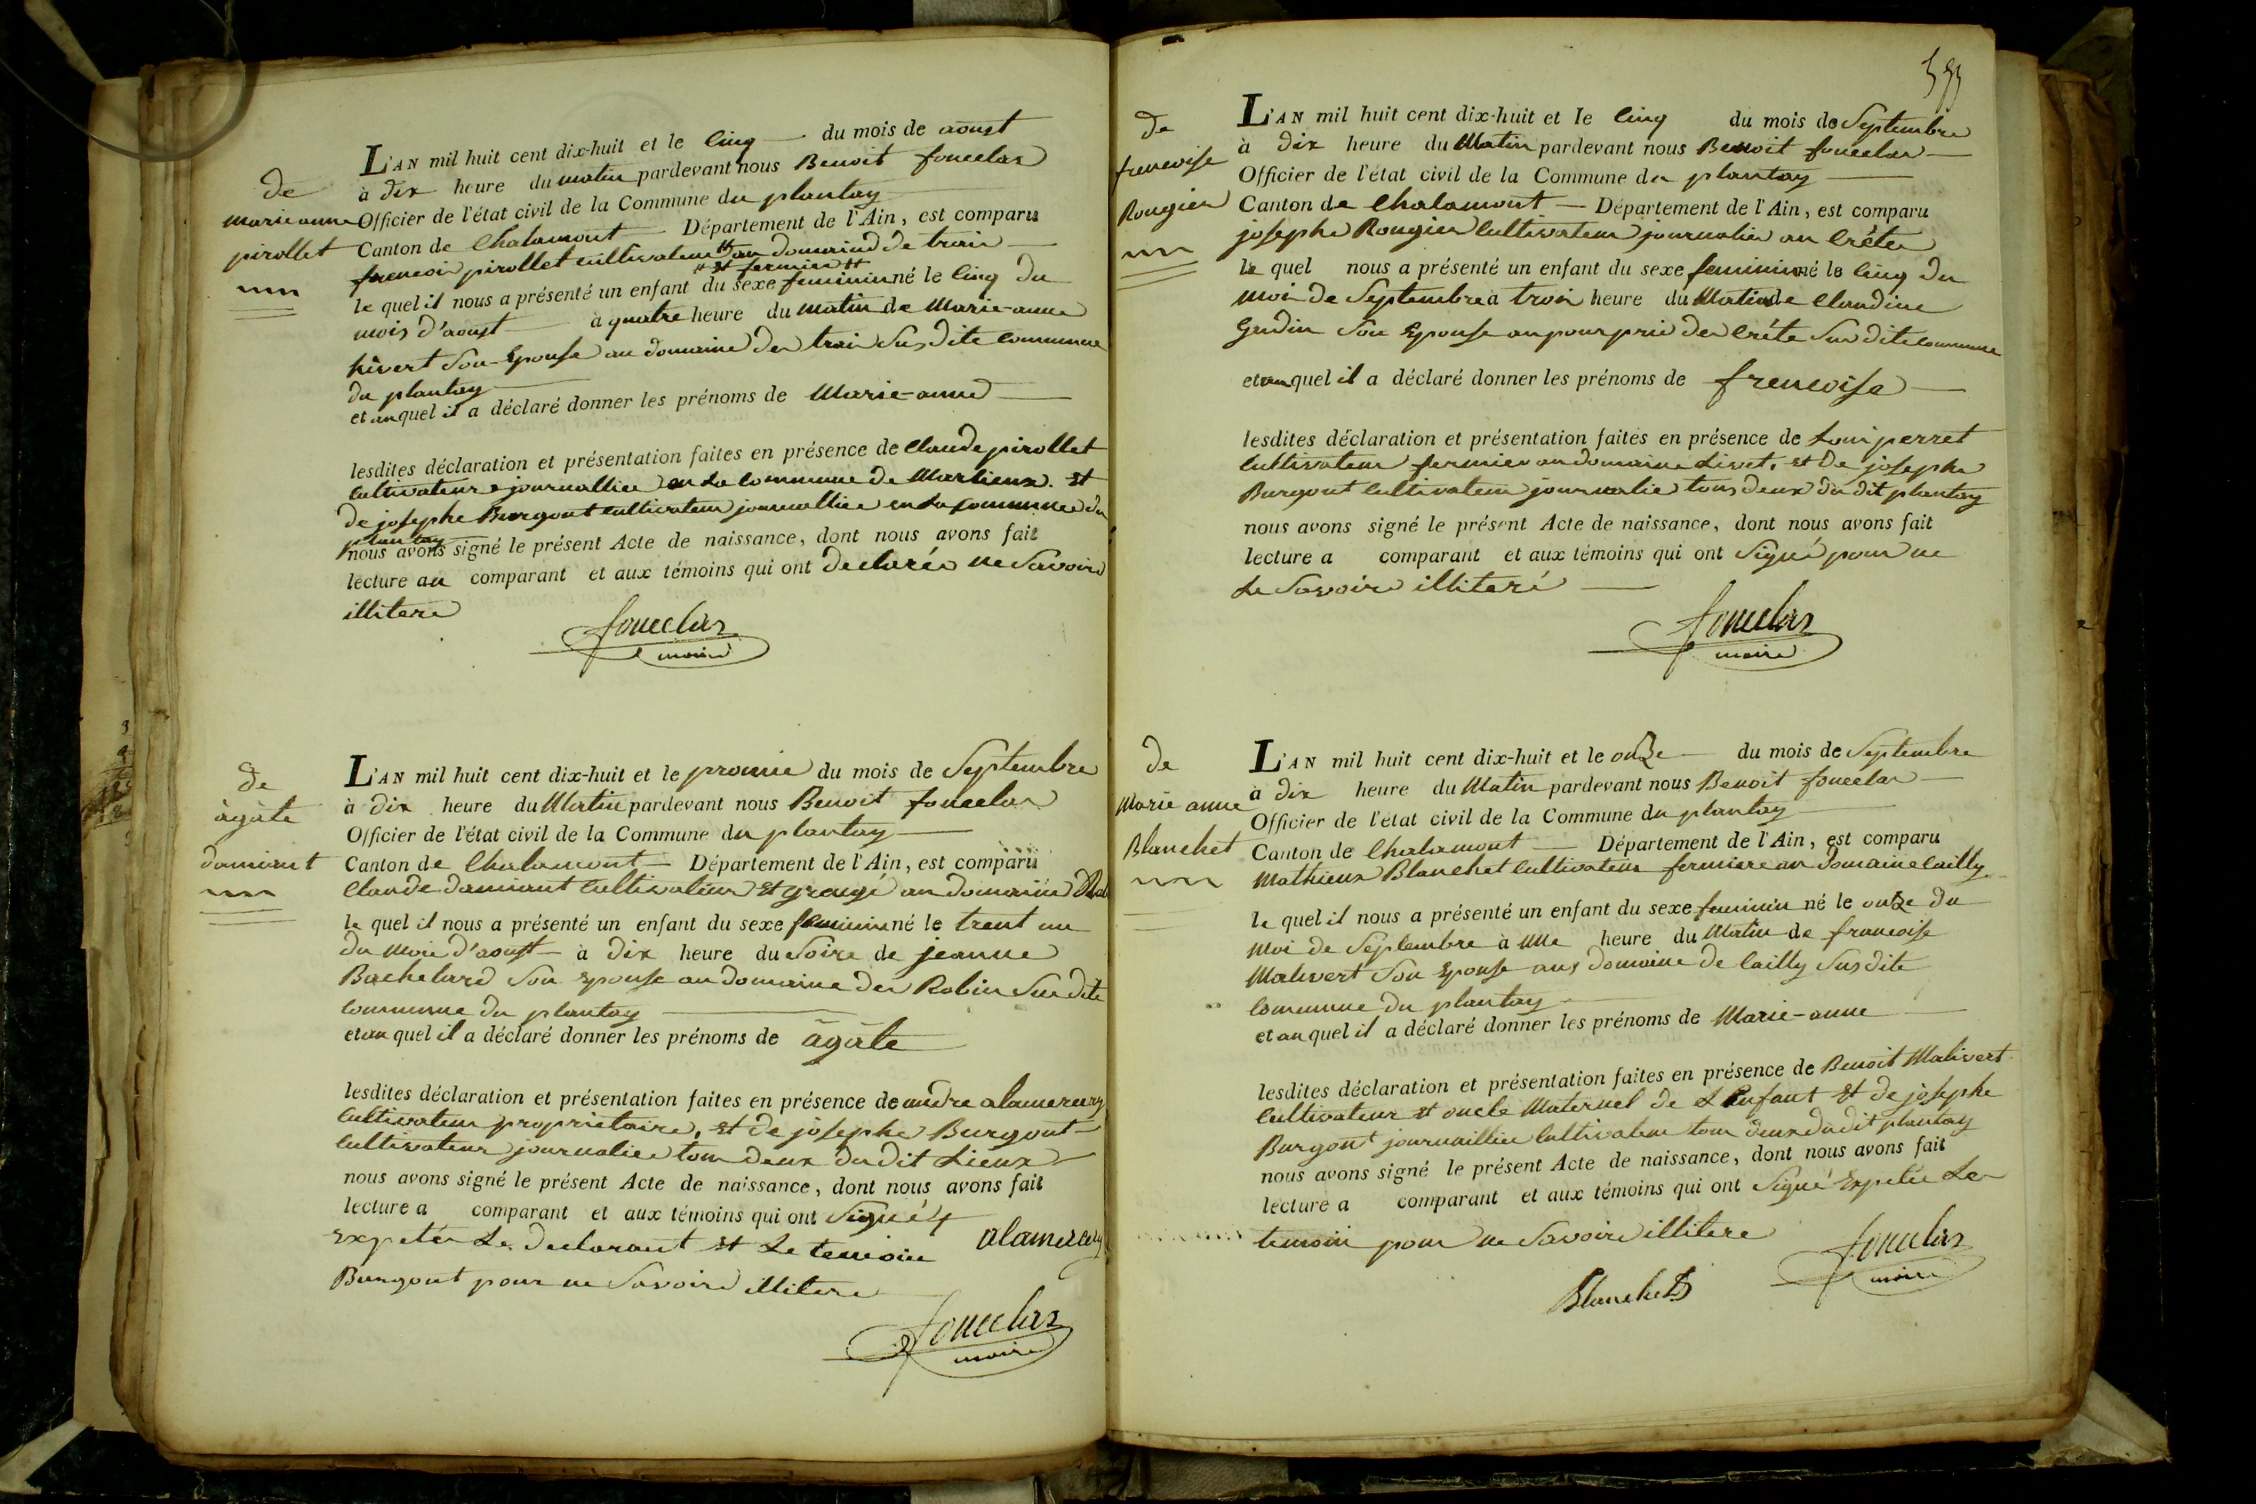 de
marie anne
pirollet
L'AN mil huit cent dix-huit et le cinq du mois de aoust
à dix heure du matin pardevant nous Benoit fonclar
Officier de l'état civil de la Commune du plantay
Canton de Chalamont Département de l'Ain, est comparu
francoi pirollet cultivateur au domaine de trai
et fermier
le quel il nous a présenté un enfant du sexe feminin né le cinq du
mois d'aoust à quatre heure du matin de Marie-anne
hivert son Epouse au domaine des trai sus dite commune
du plantay
et au quel il a déclaré donner les prénoms de Marie-anne
lesdites déclaration et présentation faites en présence de Claude pirollet
cultivateur journallier en la commune de Marlieux. et
de josephe Burgout cultivateur journallier en la commune du
plantay
nous avons signé le présent Acte de naissance, dont nous avons fait
lecture au comparant et aux témoins qui ont declarés ne savoire
illitere
fonclar
maire
de
àgàte
damiant
L'AN mil huit cent dix-huit et le premie du mois de Septembre
à dix heure du Matin pardevant nous Benoit fonclar
Officier de l'état civil de la Commune du plantay
Canton de Chalamont Département de l'Ain, est comparu
Claude damiant cultivateur et grangé au domaine
le quel il nous a présenté un enfant du sexe feminin né le trent un
du moi d'aoust à dix heure du soire de jeanne
Bachelard son Epouse au domaine des Robin sus dite
commune du plantay
et au quel il a déclaré donner les prénoms de àgàte
lesdites déclaration et présentation faites en présence de andre alamercery
cultivateur proprietaire, et de josephe Burgout
cultivateur journalier tous deux du dit Lieux
nous avons signé le présent Acte de naissance, dont nous avons fait
lecture a comparant et aux témoins qui ont signé
Expetés Le declarant et Le temoin alamercery
Burgout pour ne savoire illitere
fonclar
maire
de
frencoise
Rougier
L'AN mil huit cent dix-huit et le cinq du mois de Septembre
à dix heure du Matin pardevant nous Benoit fonclar
Officier de l'état civil de la Commune du plantay
Canton de Chalamont Département de l'Ain, est comparu
josephe Rougier cultivateur journalier au crêter
le quel nous a présenté un enfant du sexe feminin né le cinq du
moi de Septembre à troi heure du Matin de Claudine
Gudin son Epouse au pourprie des crête sus dite commune
et au quel il a déclaré donner les prénoms de frencoise
lesdites déclaration et présentation faites en présence de Loui perret
cultivateur fermier au domaine Livet, et de josephe
Burgout cultivateur journalier tous deux du dit plantay
nous avons signé le présent Acte de naissance, dont nous avons fait
lecture a comparant et aux témoins qui ont signé pour ne
Le savoire illiteré
fonclar
maire
de
Marie anne
Blanchet
L'AN mil huit cent dix-huit et le onze du mois de Septembre
à dix heure du Matin pardevant nous Benoit fonclar
Officier de l'état civil de la Commune du plantay
Canton de Chalamont Département de l'Ain, est comparu
Mathieux Blanchet cultivateur fermiere au domaine cailly
le quel il nous a présenté un enfant du sexe feminin né le onze du
moi de Septembre à une heure du Matin de francoise
Malivert son Epouse aus domaine de cailly sus dite
commune du plantay
et au quel il a déclaré donner les prénoms de Marie-anne
lesdites déclaration et présentation faites en présence de Benoit Malivert
cultivateur et oncle Maternel de L'Enfant et de josephe
Burgout journaillier cultivateur tous deux du dit plantay
nous avons signé le présent Acte de naissance, dont nous avons fait
lecture a comparant et aux témoins qui ont signé Expetée Le
temoin pour ne savoire illitere
fonclar
maire
Blanchet